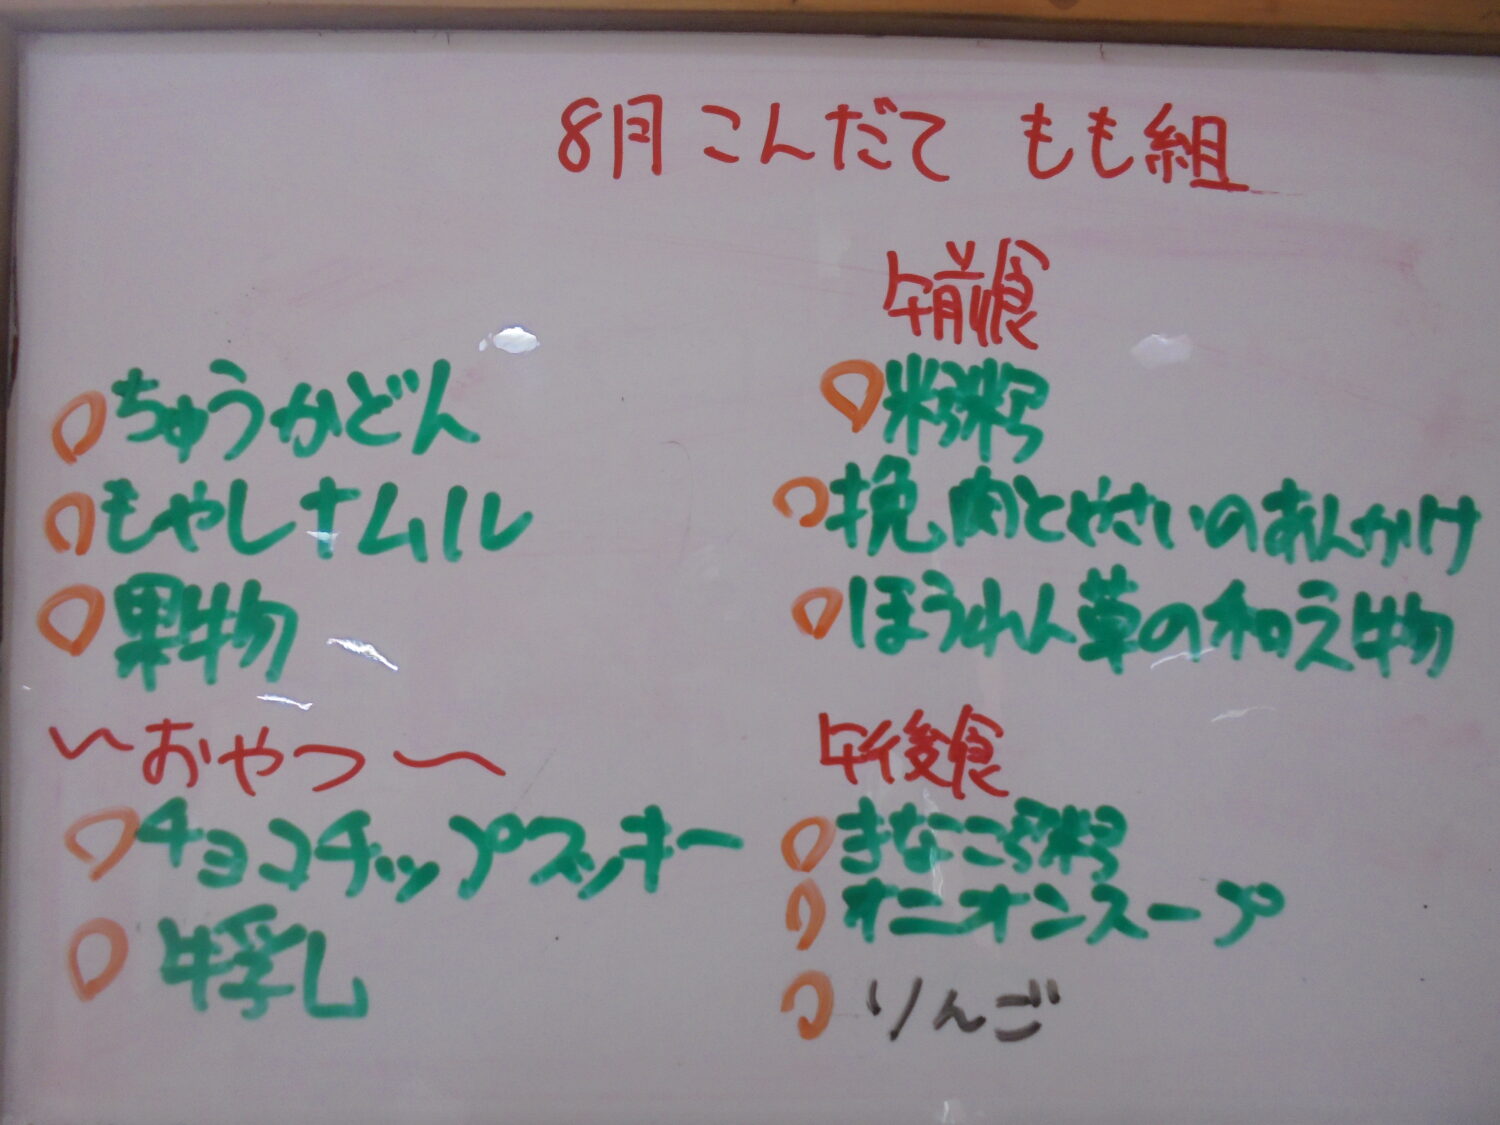 8月 こんだて もも組
ちゅうかどん
もやしナムル
果物
〜おやつ〜
チョコチップクッキー
牛乳
午前食
粥粥
挽肉とやさいのあんかけ
ほうれん草の和え物
午後食
きなこ粥
オニオンスープ
りんご